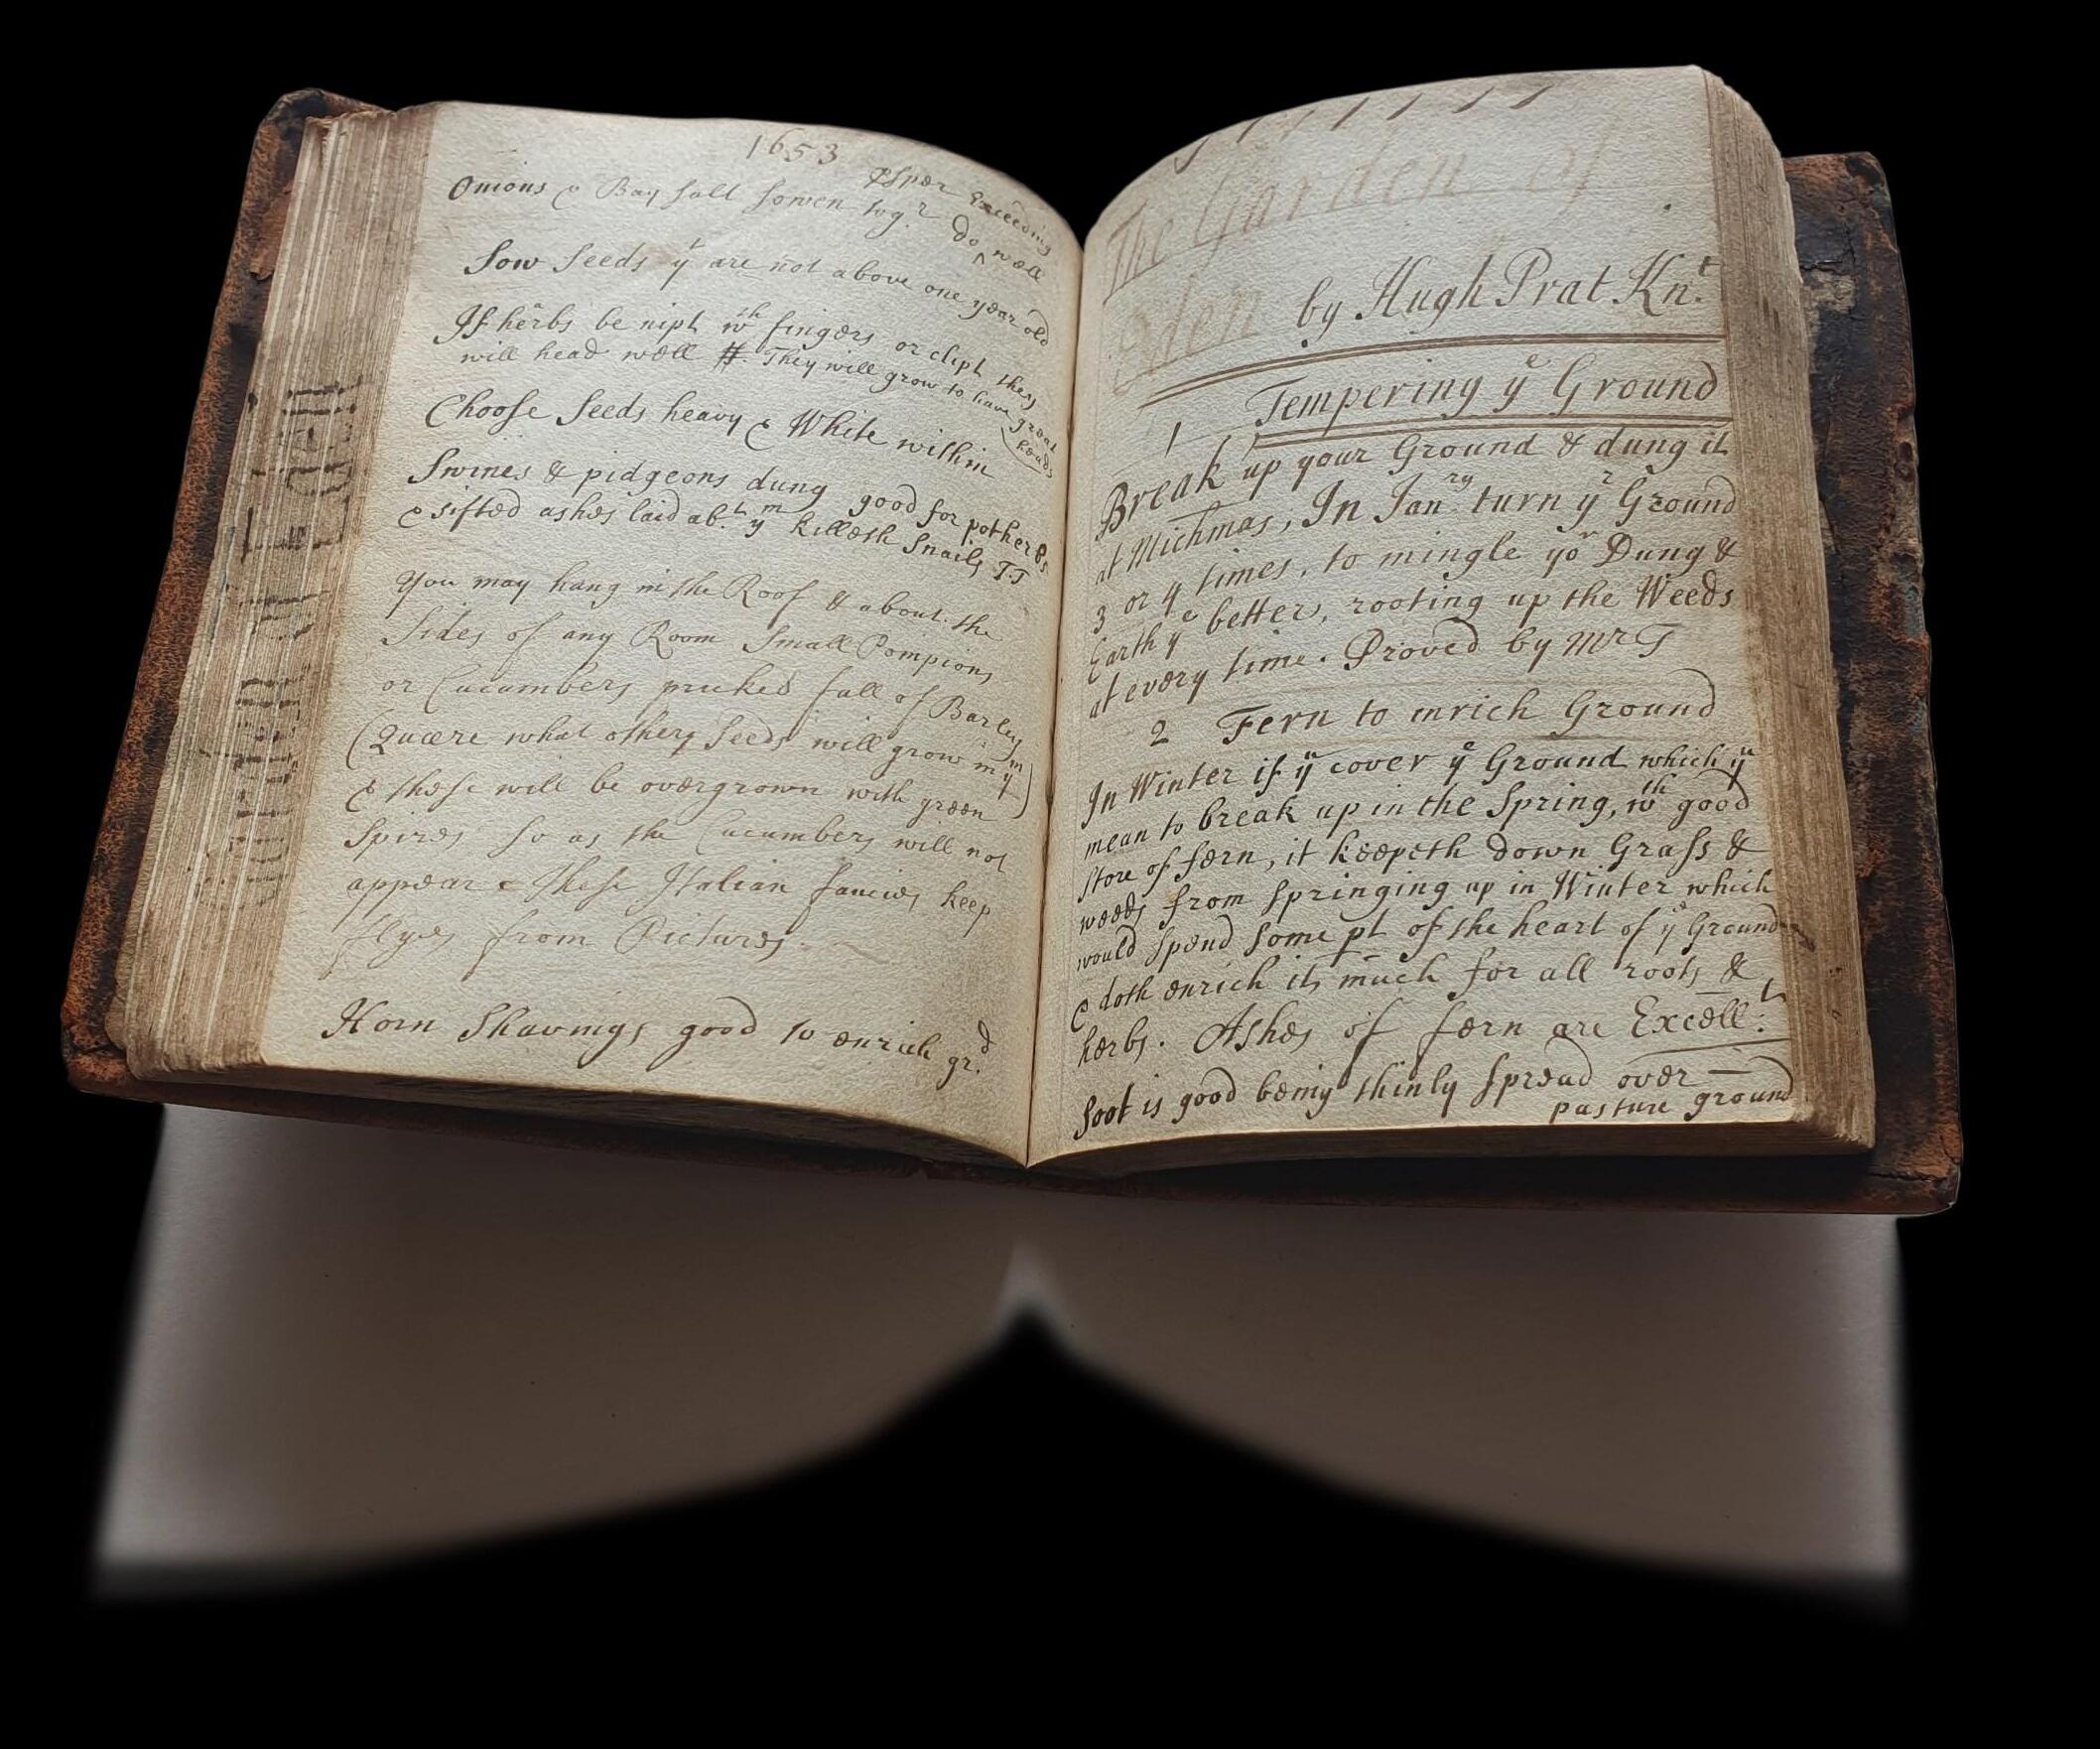 1653
Onions & Bay salt sowen togr do exceeding well
Sow Seeds yt are not above one year old
If herbs be nipt wth fingers or clipt they
will head well #. They will grow to have great
heads
Choose Seeds heavy & White within
Swines & pidgeons dung good for potherbs
& sifted ashes laid abt. ym killeth Snails T.T
You may hang in the Roof & about the
Sides of any Room Small Pompions
or Cucumbers pricked full of Barley
(Quære what others Seeds will grow in ym)
& these will be overgrown with green
Spires so as the Cucumbers will not
appear & These Italian fancies keep
flyes from Pictures.
Horn Shavings good to enrich grd.
The Garden of
Eden by Hugh Prat Knt.
Tempering ye Ground
1
Break up your Ground & dung it
at Michmas, In Janry turn yr Ground
3 or 4 times, to mingle yor Dung &
Earth ye better, rooting up the Weeds
at every time. Proved by Mr T
2 Fern to inrich Ground
In Winter if yu cover ye Ground which yu
mean to break up in the Spring, wth good
store of fern, it keepeth down Grass &
weeds from springing up in Winter which
would spend some pt of the heart of ye Ground
& doth enrich its much for all roots &
herbs. Ashes of fern are Excellt:
Soot is good being thinly spread over
pasture ground